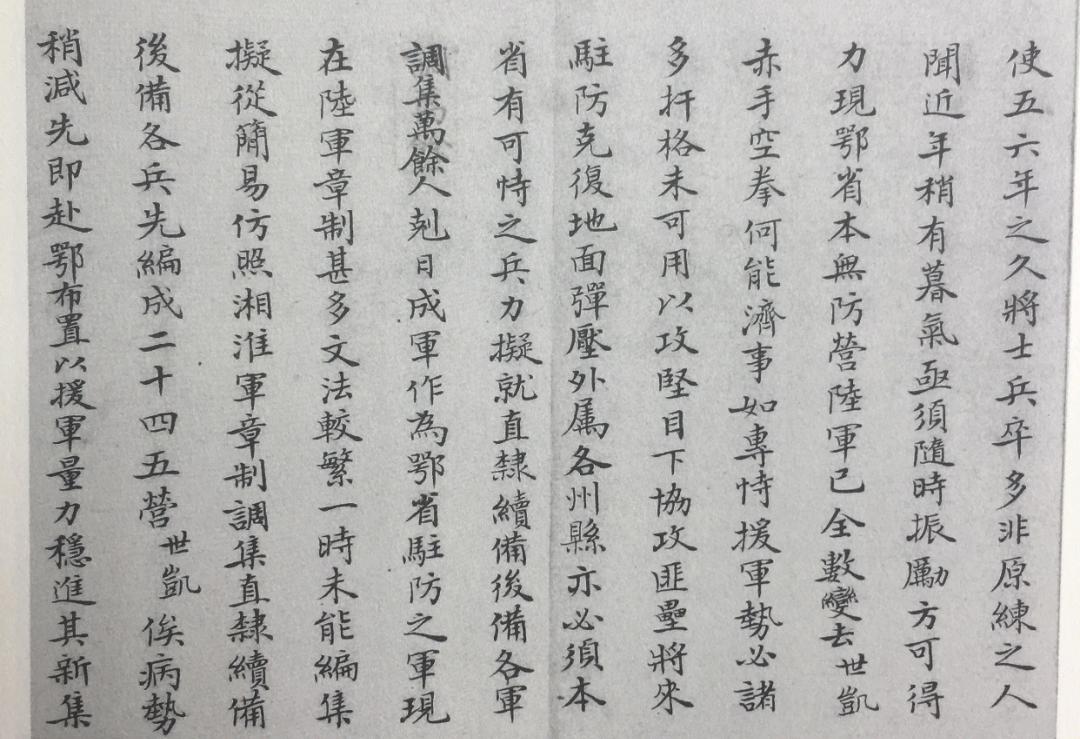 使五六年之久將士兵卒多非原練之人
聞近年稍有暮氣亟須隨時振勵方可得
力現鄂省本無防營陸軍已全數變去世凱
赤手空拳何能濟事如專恃援軍勢必諸
多扞格未可用以攻堅目下協攻匪壘將來
駐防克復地面彈壓外属各州縣亦必須本
省有可恃之兵力擬就直隸續備後備各軍
調集萬餘人剋日成軍作為鄂省駐防之軍現
在陸軍章制甚多文法較繁一時未能編集
擬從簡易仿照湘淮軍章制調集直隸續備
後備各兵先編成二十四五營世凱俟病勢
稍減先即赴鄂布置以援軍量力穩進其新集